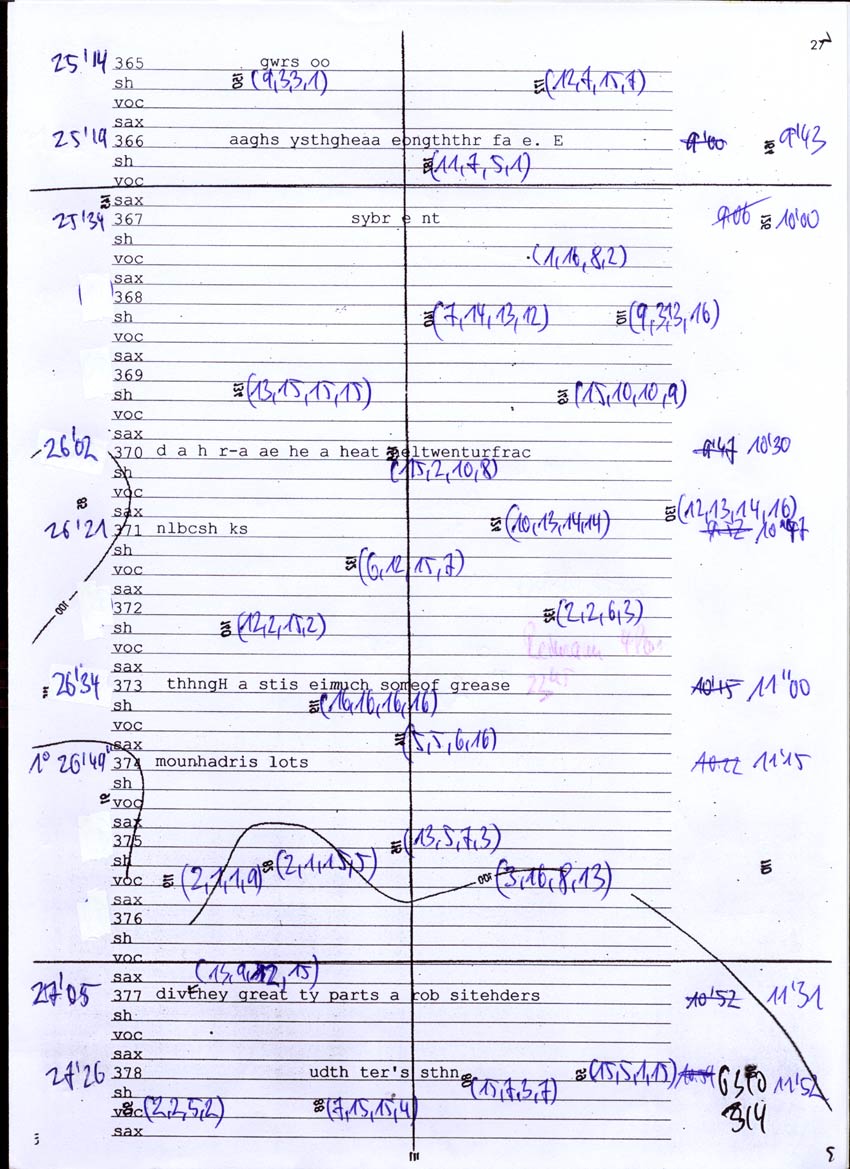 27
25'14 365 gwrs oo
sh (9,33,1) (12,7,15,7)
voc
sax
25'19 366 aaghs ysthgheaa eongththr fa e. E 9'00 9'43
sh (11,7,5,1)
voc
sax
25'34 367 sybr e nt 9'06 10'00
sh
voc (1,16,8,2)
sax
368
sh (7,14,13,12) (9,3,13,16)
voc
sax
369
sh (13,15,15,15) (15,10,10,9)
voc
sax
26'02 370 d a h r-a ae he a heat eltwenturfrac 9'47 10'30
sh (15,2,10,8)
voc
sax (10,13,14,14) (12,13,14,16)
26'21 371 nlbcsh ks
sh
voc (6,12,15,7)
sax
372 (2,2,6,3)
sh (12,2,15,2)
voc
sax
26'34 373 thhngH a stis eimuch someof grease 10'45 11"00
sh (16,16,16,16)
voc
sax (5,5,6,16)
1° 26'49" 374 mounhadris lots 11'15
sh
voc
sax
375 (13,5,7,3)
sh (2,1,15,5)
voc (2,1,1,9) 100 (3,16,8,13)
sax
376
sh
voc
sax
27'05 377 divthey great ty parts a rob sitehders 10'52 11'31
sh
voc
sax
27'26 378 udth ter's sthn (15,5,1,15) 11'52
sh (15,7,3,7)
voc (2,2,5,2) (7,15,15,4) 314
sax